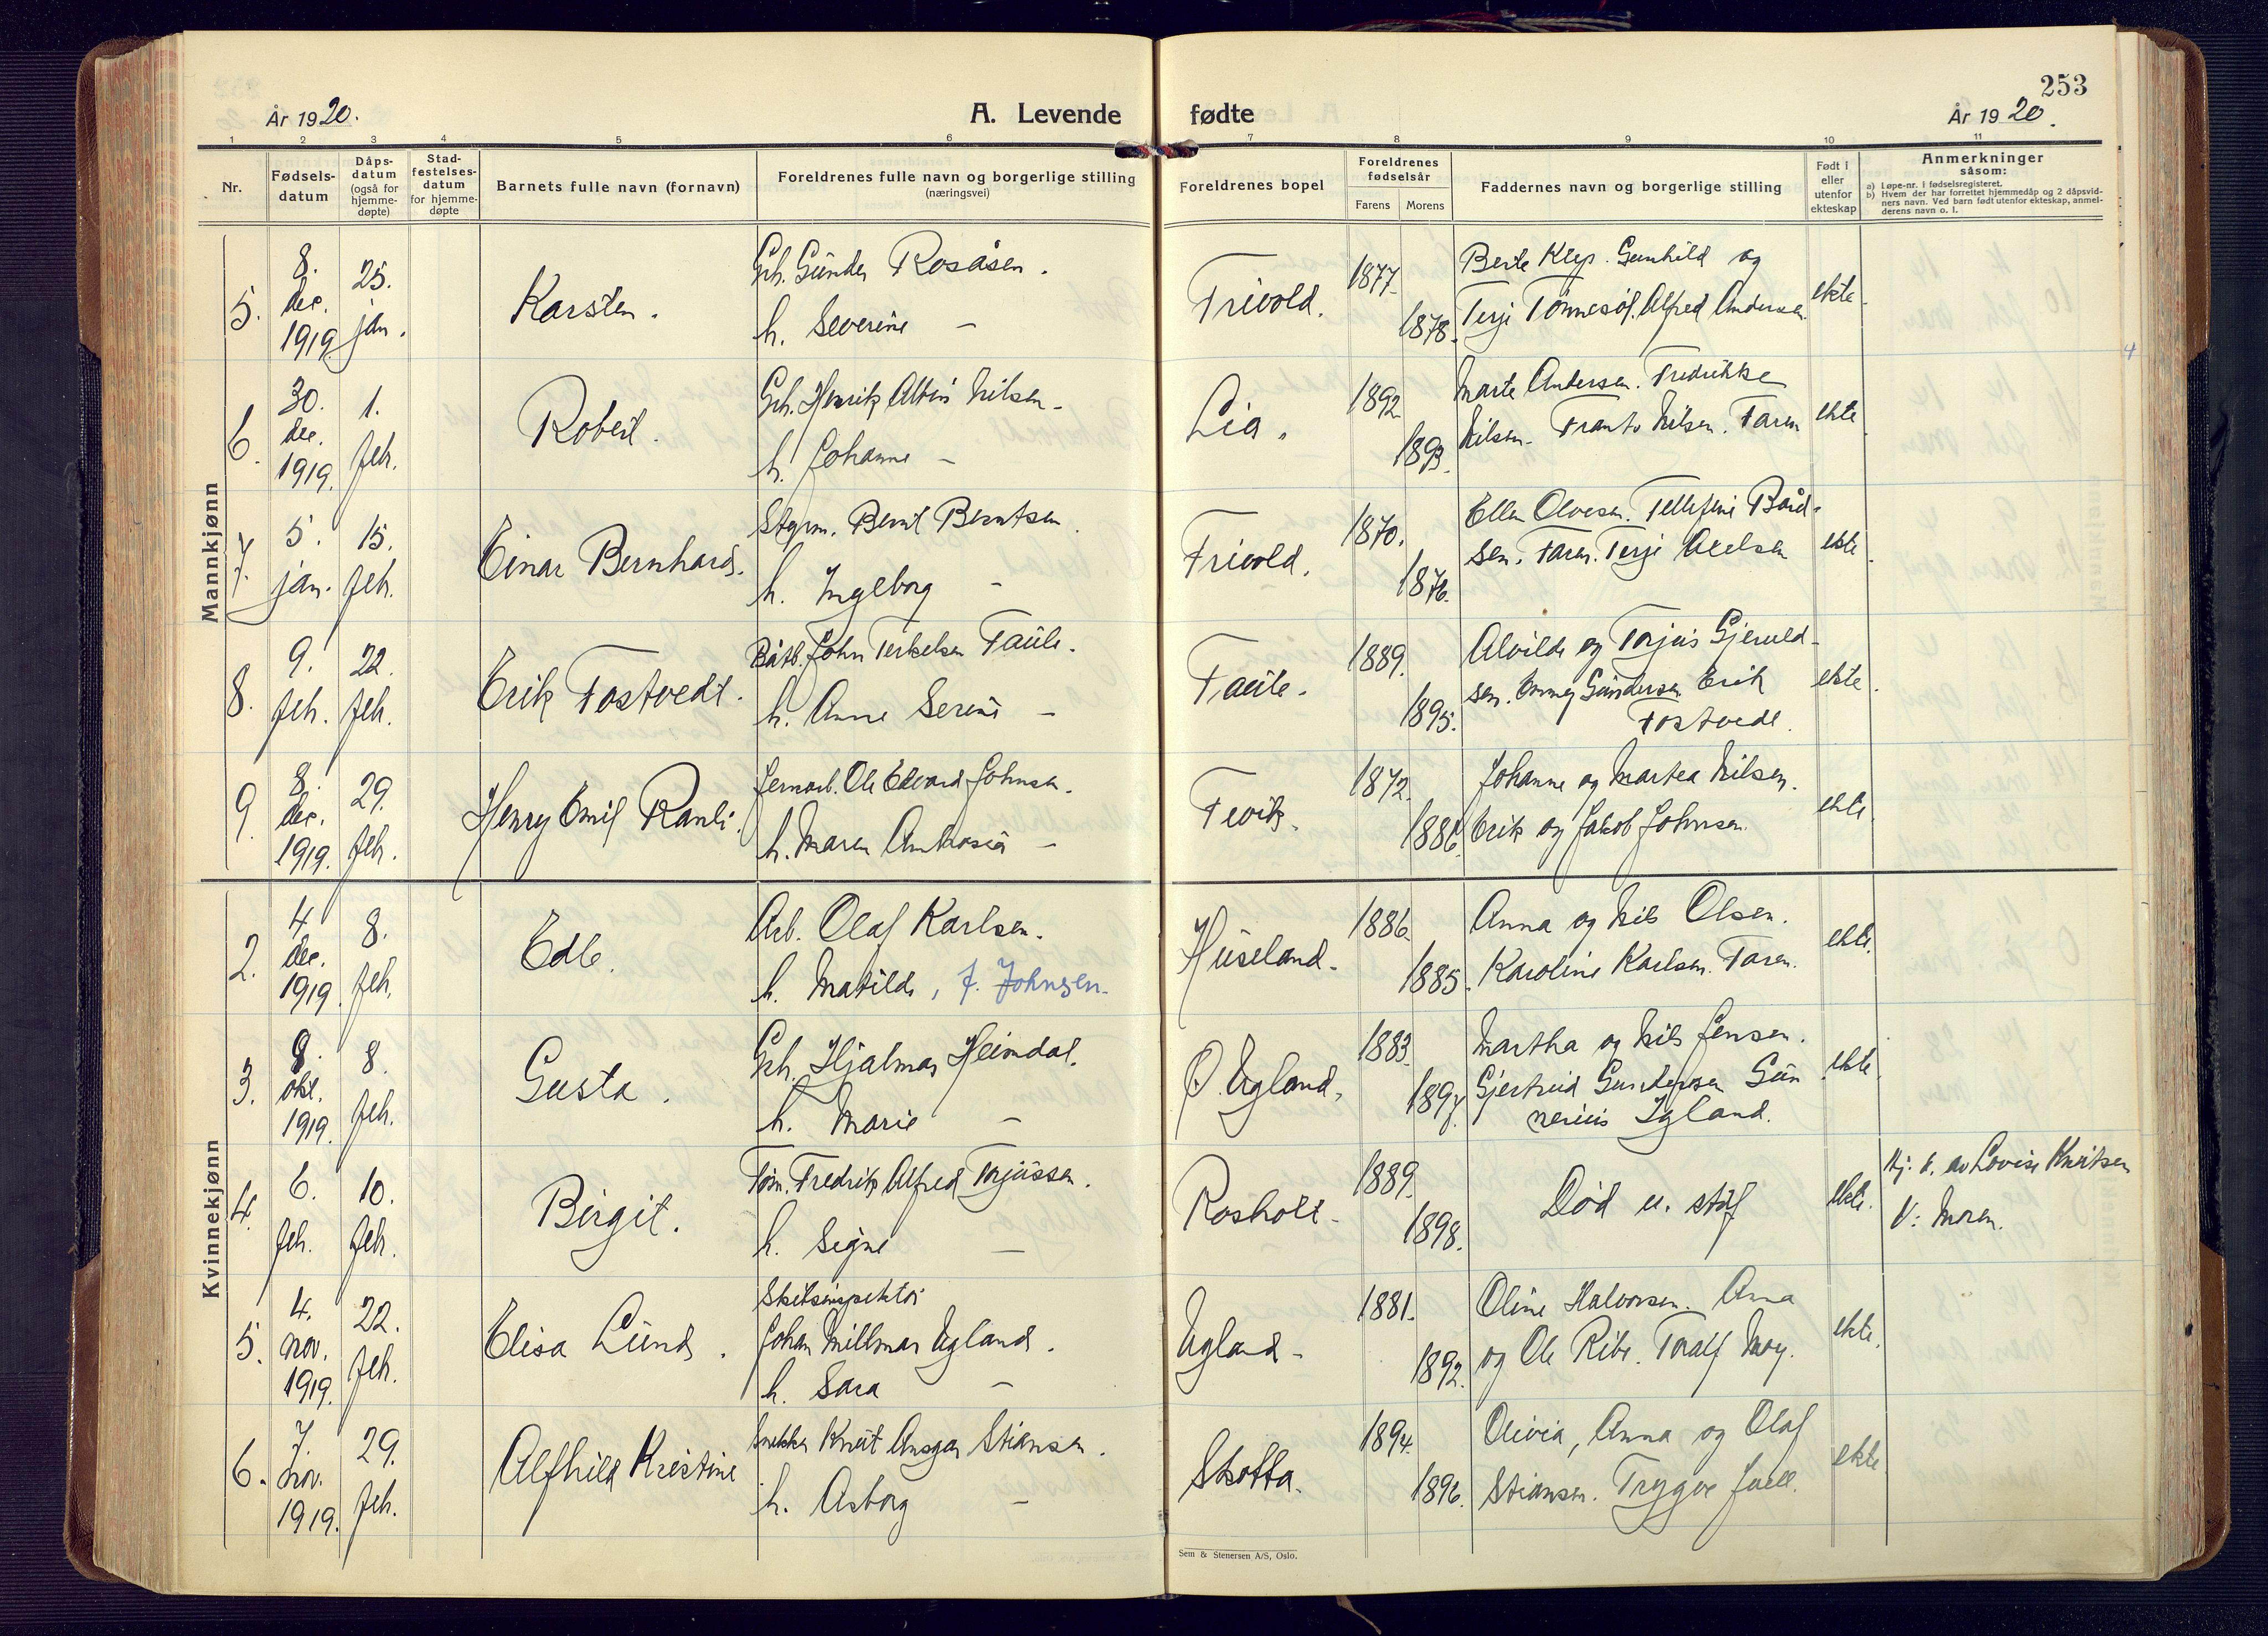 253
År 1920.
A. Levende fødte
År 1920.
1 2 3 4 5 6 7 8 9 10 11
Nr.
Fødsels-
datum
Dåps-
datum
(også for
hjemme-
døpte)
Stad-
festelses-
datum
for hjemme-
døpte
Barnets fulle navn (fornavn)
Foreldrenes fulle navn og borgerlige stilling
(næringsvei)
Foreldrenes bopel
Foreldrenes
fødselsår
Farens Morens
Faddernes navn og borgerlige stilling
Født i
eller
utenfor
ekteskap
Anmerkninger
såsom:
a) Løpe-nr. i fødselsregisteret.
b) Hvem der har forrettet hjemmedåp og 2 dåpsvid-
ners navn. Ved barn født utenfor ekteskap, anmel-
derens navn o. l.
Mannkjønn
5.
8.
dec.
1919
25.
jan.
Karsten.
Gbr. Gunder Rosåsen.
h. Severine —
Trivold.
1877.
1878.
Berte Klep. Gunhild og
Terje Tønnesøl. Alfred Andersen.
ekte.
6.
30.
dec.
1919.
1.
feb.
Robert.
Gbr. Henrik Albin Nilsen.
h. Johanne —
Lia.
1892
1893.
Marte Andersen. Fredrikke
Nilsen. Frants Nilsen. Faren
ekte
7.
5.
jan.
15.
feb.
Einar Bernhard.
Styrm. Bernt Berntsen.
h. Ingeborg —
Trivold.
1870.
1876.
Ellen Olvesen. Tellefine Bård-
sen. Faren. Terje Axelsen
ekte.
8.
9.
feb.
22.
feb.
Erik Tostvedt.
Båtb. John Terkelsen Taule.
h. Anne Serine —
Taule.
1889.
1895.
Alvilde og Torjus Gjeruld-
sen. Emmy Gundersen Erik
Tostvedt.
ekte.
9.
8.
dec.
1919.
29.
feb.
Henry Emil Ranli.
Jernarb. Ole Edvard Johnsen.
h. Maren Ambrosia —
Fevik.
1872.
1886.
Johanne og Martea Nilsen.
Erik og Jakob Johnsen.
ekte.
Kvinnekjønn
2.
4.
dec.
1919.
8.
feb.
Edle.
Arb. Olaf Karlsen.
h. Matilde, f. Johnsen.
Huseland.
1886.
1885.
Anna og Nils Olsen.
Karoline Karlsen. Faren.
ekte.
3.
8.
okt.
1919.
8.
feb.
Gusta.
Gbr. Hjalmar Heimdal.
h. Marie —
Ø. Ugland.
1883.
1897.
Martha og Nils Jensen.
Gjertrud Gundersen Gun
nerius Igland.
ekte.
4.
6.
feb.
10.
feb.
Birgit.
Tøm. Fredrik Alfred Torjussen.
h. Signe —
Rosholt.
1889.
1898.
Død u. stf
ekte.
Hj. d. av Lovise Knutsen
V: Moren.
5.
4.
nov.
1919.
22.
feb.
Elisa Lund.
Skibsinspektør
Johan Millmar Ugland.
h. Sara —
Ugland.
1881.
1892.
Oline Halvorsen. Anna
og Ole Ribe. Toralf Moy.
ekte.
6.
7.
nov.
1919.
29.
feb.
Alfhild Kristine
Snekker Knut Ansgar Stiansen.
h. Asborg —
Skotta.
1894.
1896.
Olivia, Anna og Olaf
Stiansen. Trygve Juell.
ekte.
Sem & Stenersen A/S, Oslo.
4